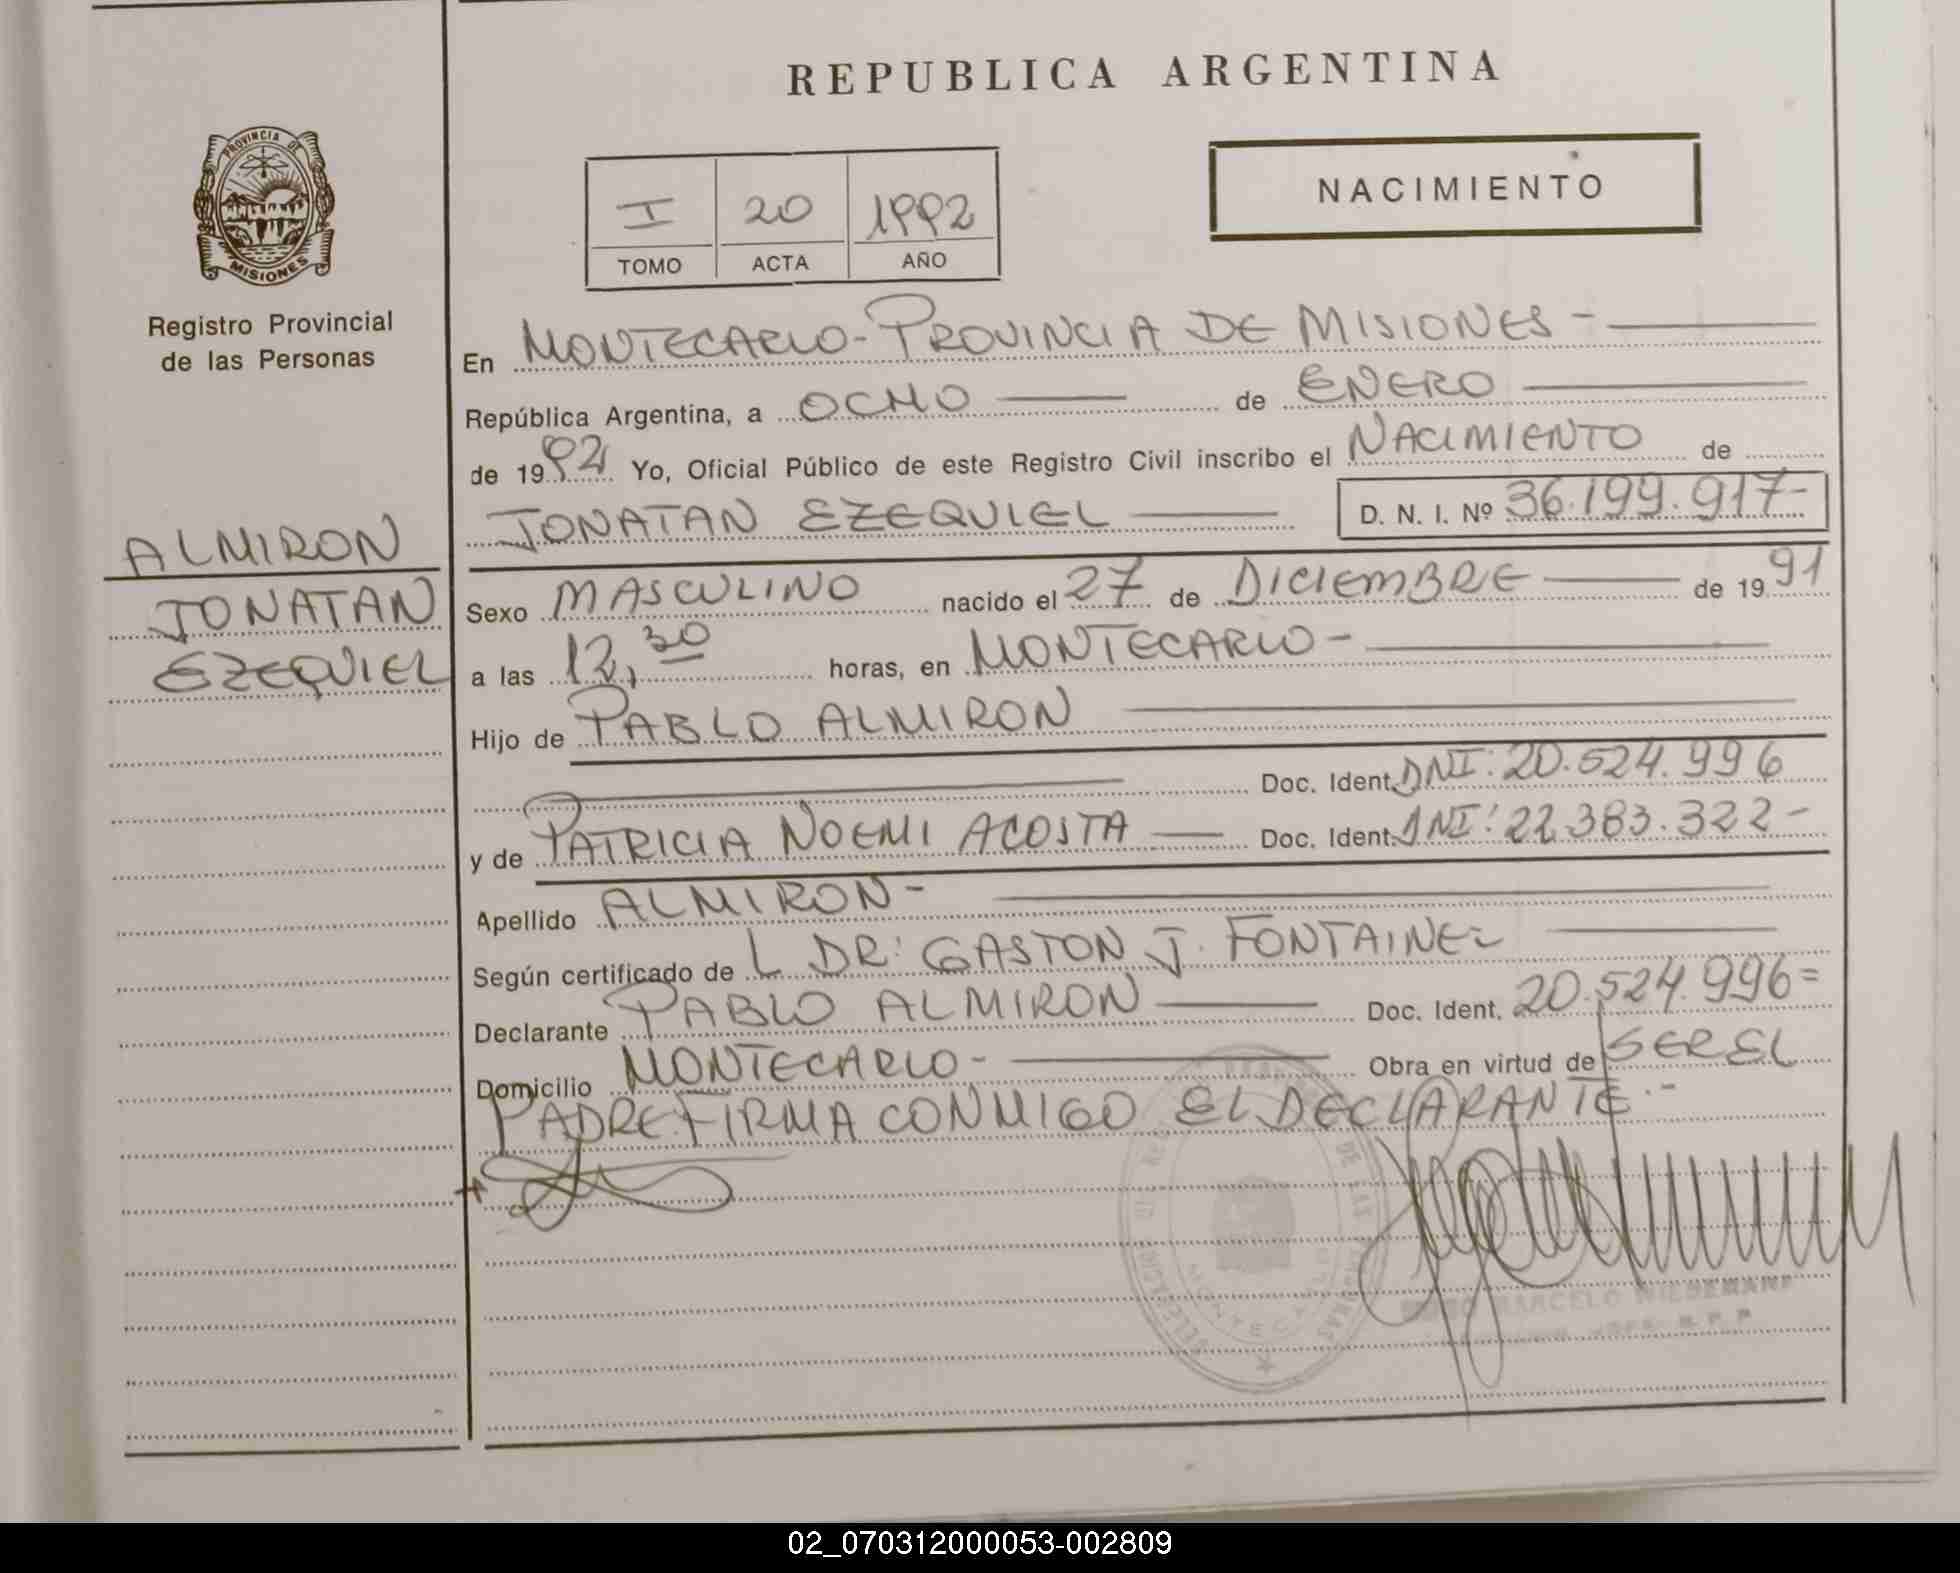 REPUBLICA ARGENTINA
PROVINCIA DE
MISIONES
Registro Provincial
de las Personas
NACIMIENTO
I 20 1992
TOMO ACTA AÑO
En MONTECARLO - PROVINCIA DE MISIONES -
República Argentina, a OCHO de ENERO
de 1992 Yo, Oficial Público de este Registro Civil inscribo el NACIMIENTO de
JONATAN EZEQUIEL D. N. I. Nº 36.199.917-
ALMIRON
JONATAN
EZEQUIEL
Sexo MASCULINO nacido el 27 de DICIEMBRE de 1991
a las 12,30 horas, en MONTECARLO -
Hijo de PABLO ALMIRON
Doc. Ident. DNI: 20.524.996
y de PATRICIA NOEMI ACOSTA Doc. Ident. DNI: 22.383.322-
Apellido ALMIRON -
Según certificado de L DR: GASTON J. FONTAINE-
Declarante PABLO ALMIRON Doc. Ident. 20.524.996=
Domicilio MONTECARLO - Obra en virtud de SER EL
PADRE. FIRMA CONMIGO EL DECLARANTE.-
DE LAS PERSONAS
MONTECARLO
MARCELO
02_070312000053-002809